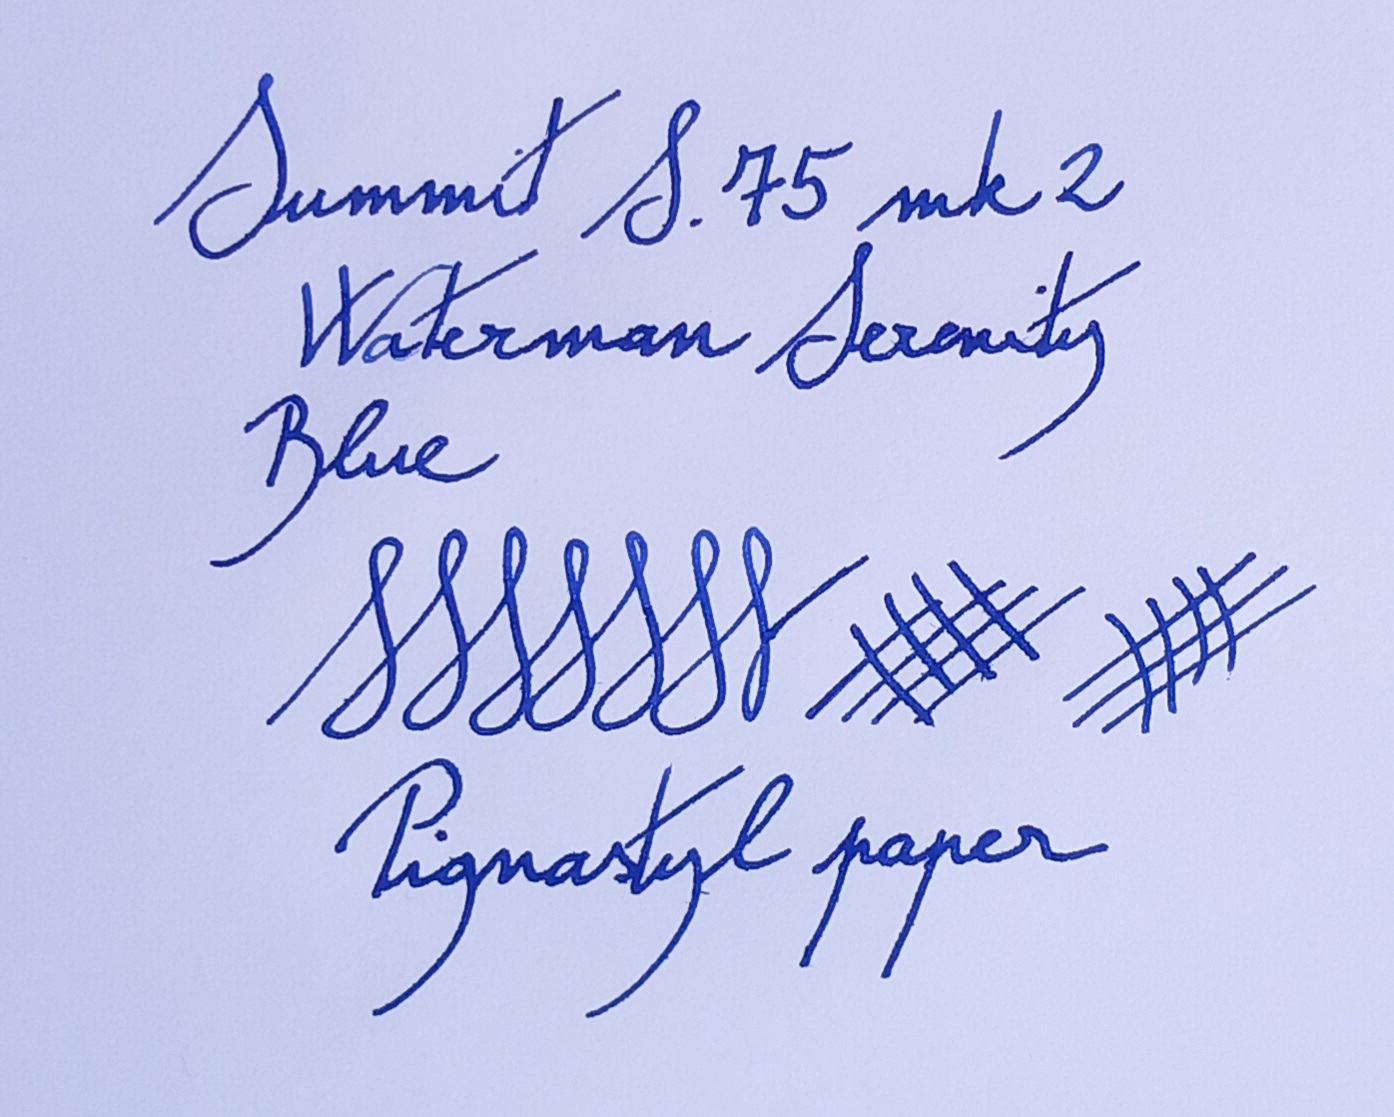 Summit S.75 mk 2
Waterman Serenity
Blue
Pignastyl paper